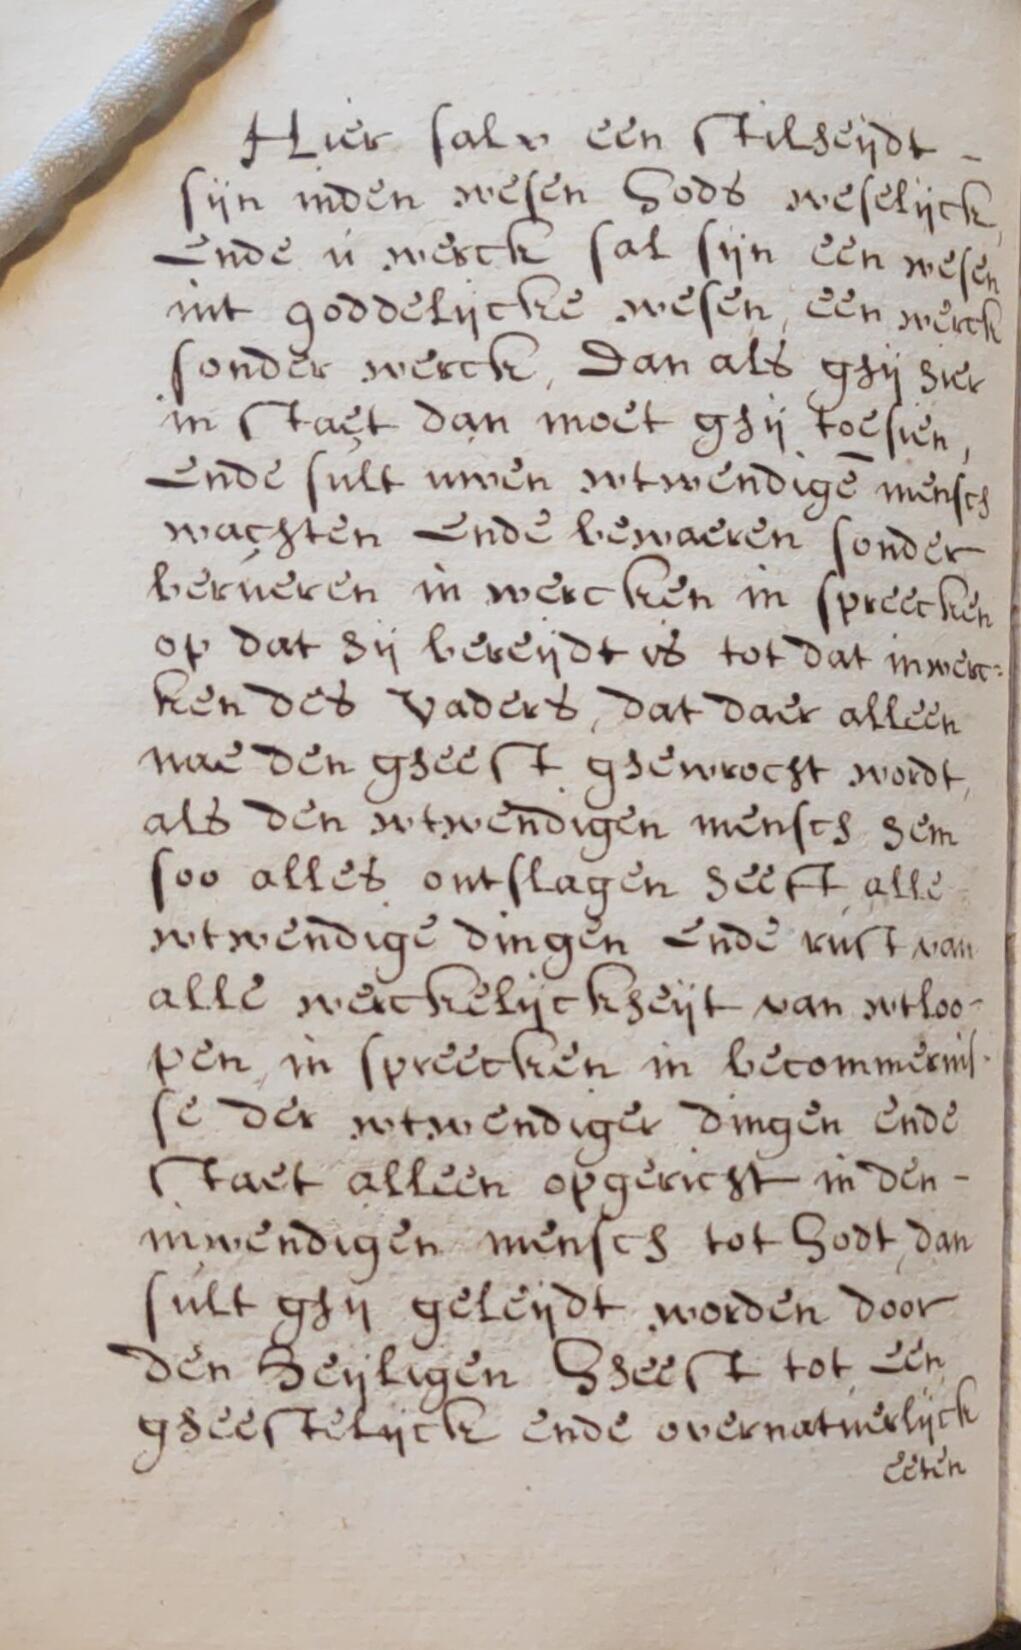 Hier sal v een stilheijdt -
sijn inden wesen Gods weselijck,
Ende ú werck sal sijn een wesen
int goddelijcke wesen, een werck
sonder werck, Dan als ghij hier
in staet dan moet ghij toesien,
Ende sult uwen wtwendigē mensch
wachten Ende bewaeren sonder
berúeren in wercken in spreecken
op dat hij bereijdt is tot dat inwerc=
ken des Vaders, dat daer alleen
nae den gheest ghewrocht wordt,
als den wtwendigen mensch hem
soo alles ontslagen heeft alle
wtwendige dingen Ende rúst van
alle werckelijckheijt van wtloo-
pen, in spreecken in becommernis-
se der wtwendiger dingen ende
staet alleen opgericht in den -
inwendigen mensch tot Godt, dan
súlt ghij geleijdt worden door
den Heijligen Gheest tot Een
gheestelijck ende overnatuerlijck
eeten